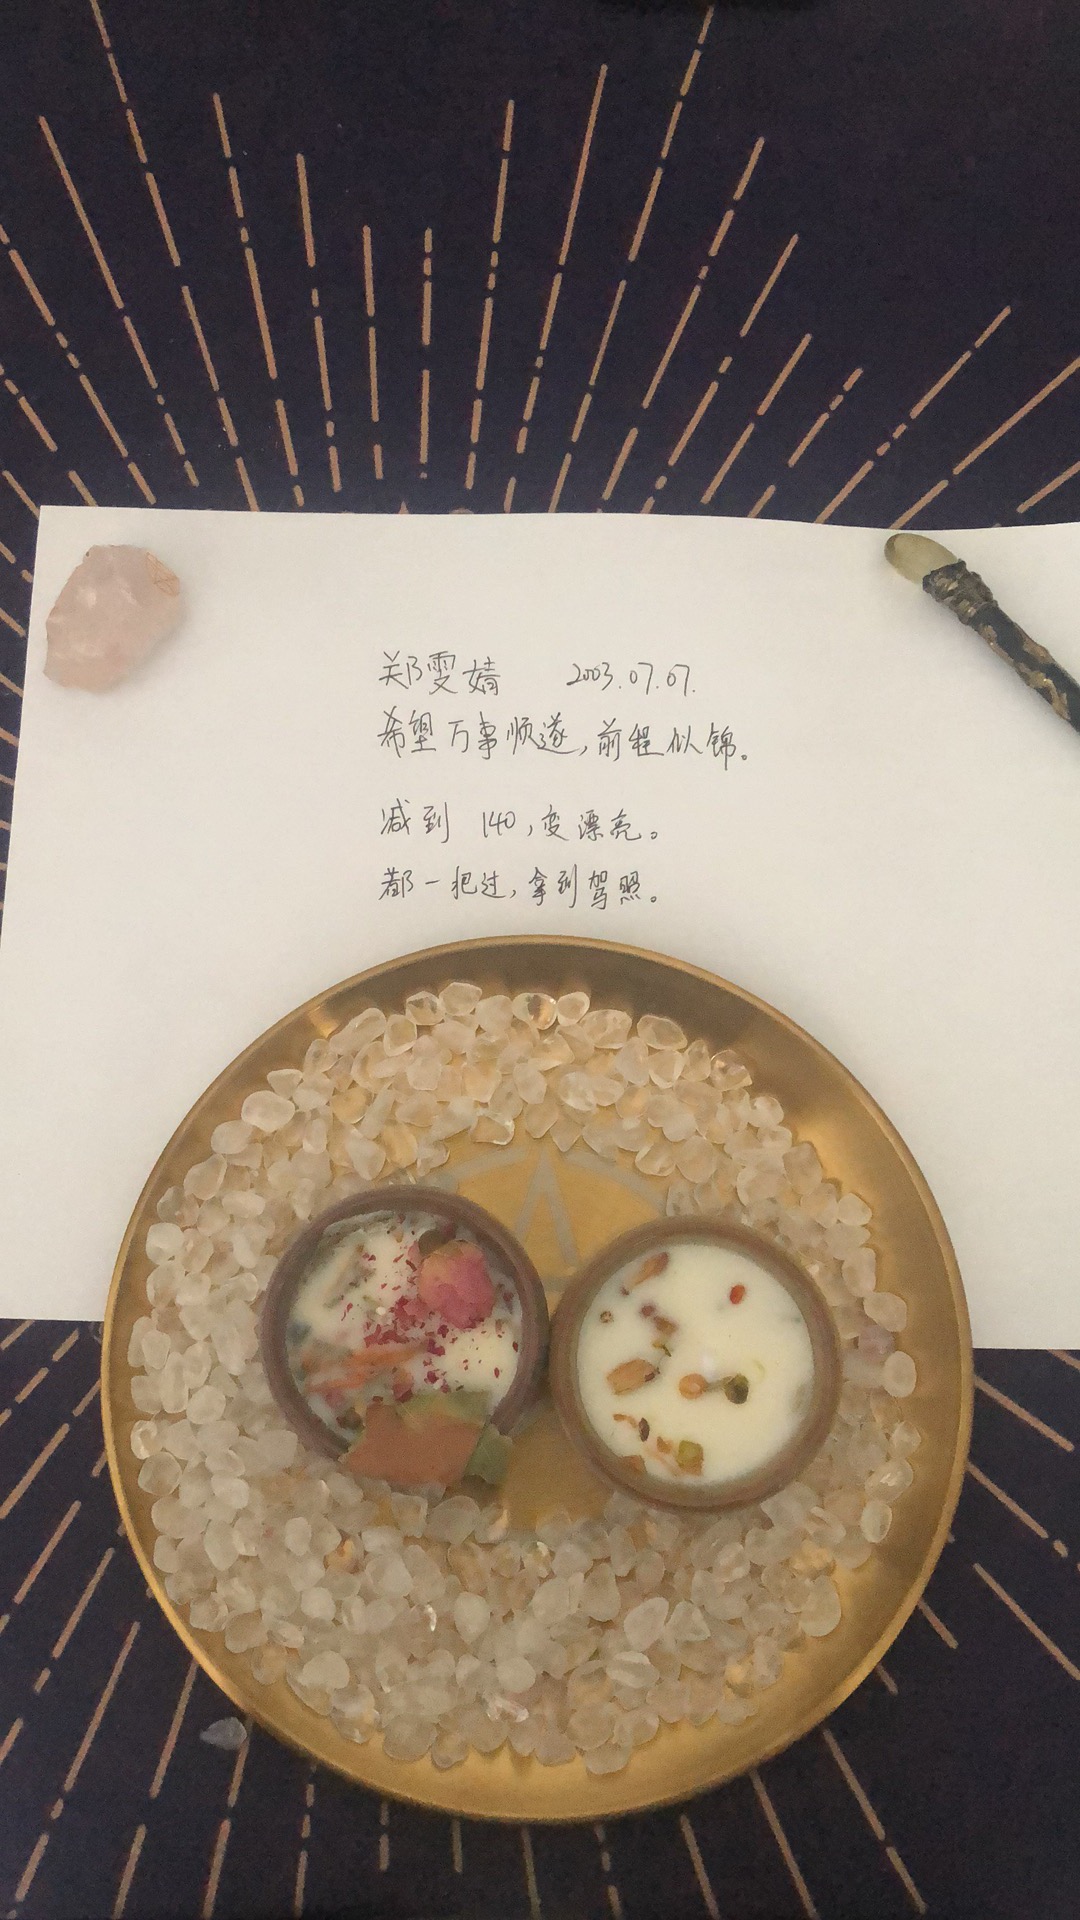 郑雯婧 2003.07.07.
希望万事顺遂,前程似锦。
减到 140,变漂亮。
都一把过,拿到驾照。